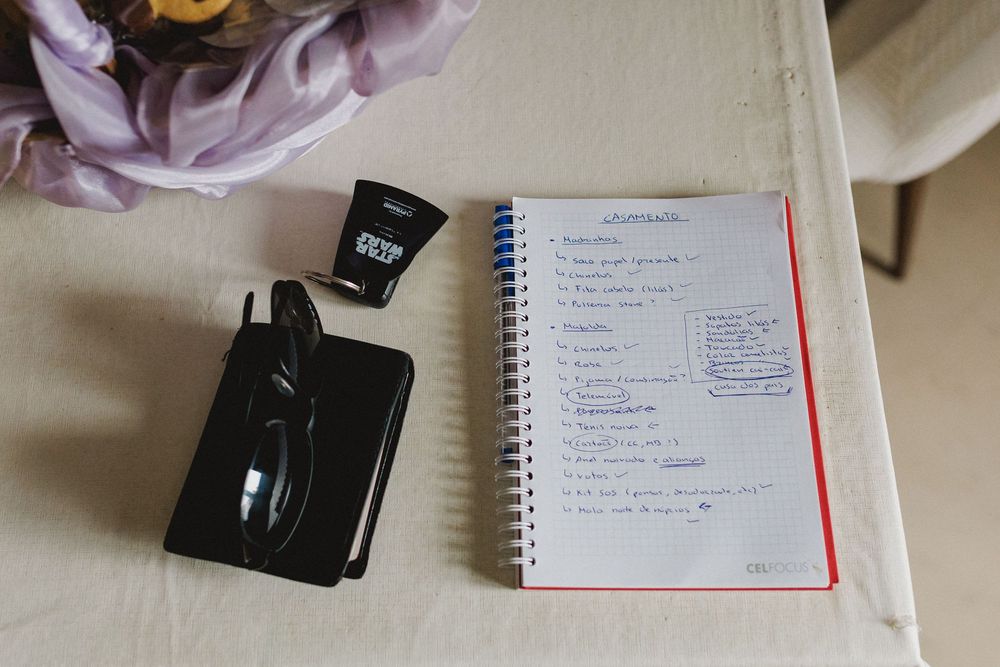 PYRAMID
STAR
WARS
CASAMENTO
• Madrinhas
↳ Saco papel / presente ✓
↳ Chinelos ✓
↳ Fita cabelo (lilás) ✓
↳ Pulseira stone ? ✓
• Mafalda
↳ Chinelos ✓
↳ Robe ✓
↳ Pijama / Combinação ?
↳ Telemóvel
↳ Ténis noiva ←
↳ Cartões (CC, MB ?)
↳ Anel noivado e alianças
↳ Votos ✓
↳ Kit SOS (pensos, desodorizante, etc) ✓
↳ Mala noite de núpcias ←
- Vestido ✓
- Sapatos lilás ←
- Sandálias ←
- Toucado ✓
- Colar
- Brincos
- Soutien cai-cai
casa dos pais
CELFOCUS